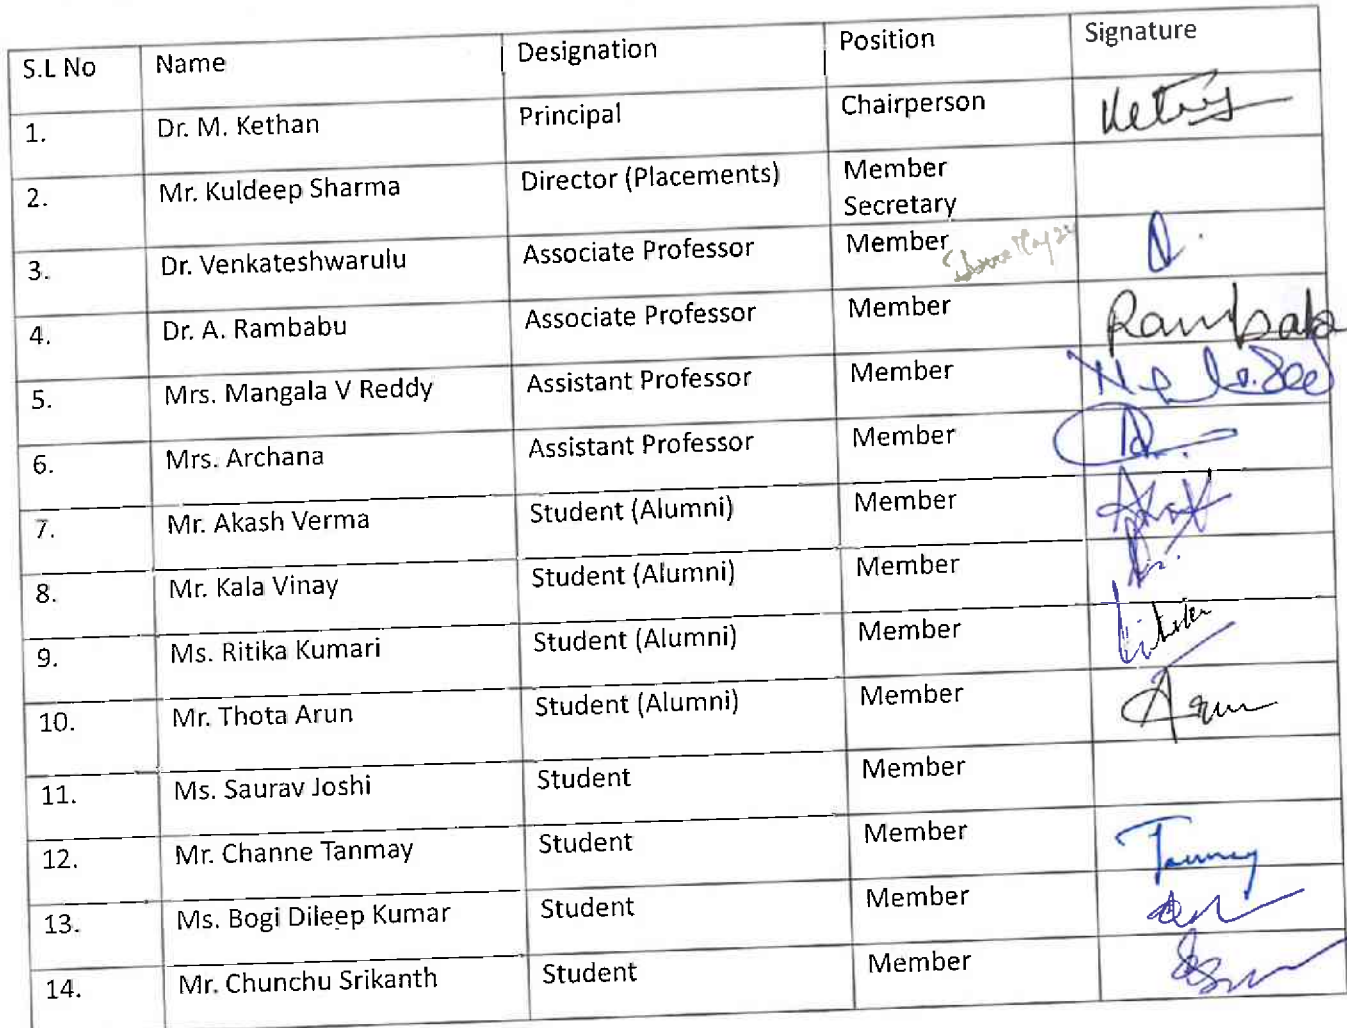 S.L No Name Designation Position Signature
1. Dr. M. Kethan Principal Chairperson
2. Mr. Kuldeep Sharma Director (Placements) Member
Secretary
3. Dr. Venkateshwarulu Associate Professor Member
4. Dr. A. Rambabu Associate Professor Member Rambab
5. Mrs. Mangala V Reddy Assistant Professor Member
6. Mrs. Archana Assistant Professor Member
7. Mr. Akash Verma Student (Alumni) Member
8. Mr. Kala Vinay Student (Alumni) Member
9. Ms. Ritika Kumari Student (Alumni) Member
10. Mr. Thota Arun Student (Alumni) Member Arun
11. Ms. Saurav Joshi Student Member
12. Mr. Channe Tanmay Student Member Tanmay
13. Ms. Bogi Dileep Kumar Student Member
14. Mr. Chunchu Srikanth Student Member